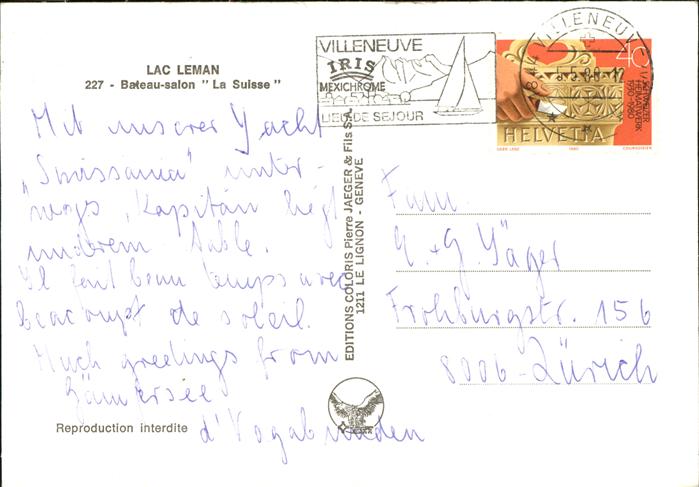 LAC LEMAN
227 - Bateau-salon " La Suisse "
Mit unserer Yacht
„Swissania" unter-
wegs, Kapitän liegt
underem Sable.
Il fait beau temps avec
beaucoupt de soleil.
Much greetings from
Genfersee
d'Vagabunden
Reproduction interdite
EDITIONS COLORIS Pierre JAEGER & Fils S.A.
1211 LE LIGNON - GENEVE
VILLENEUVE
IRIS
MEXICHROME
LIEU DE SEJOUR
VILLENEUVE
1844
40
SCHWEIZER
HEIMATWERK
1930-1980
HELVETIA
1980
COURVOISIER
Fam.
G. + G. Jäger
Frohburgstr. 156
8006 - Zürich